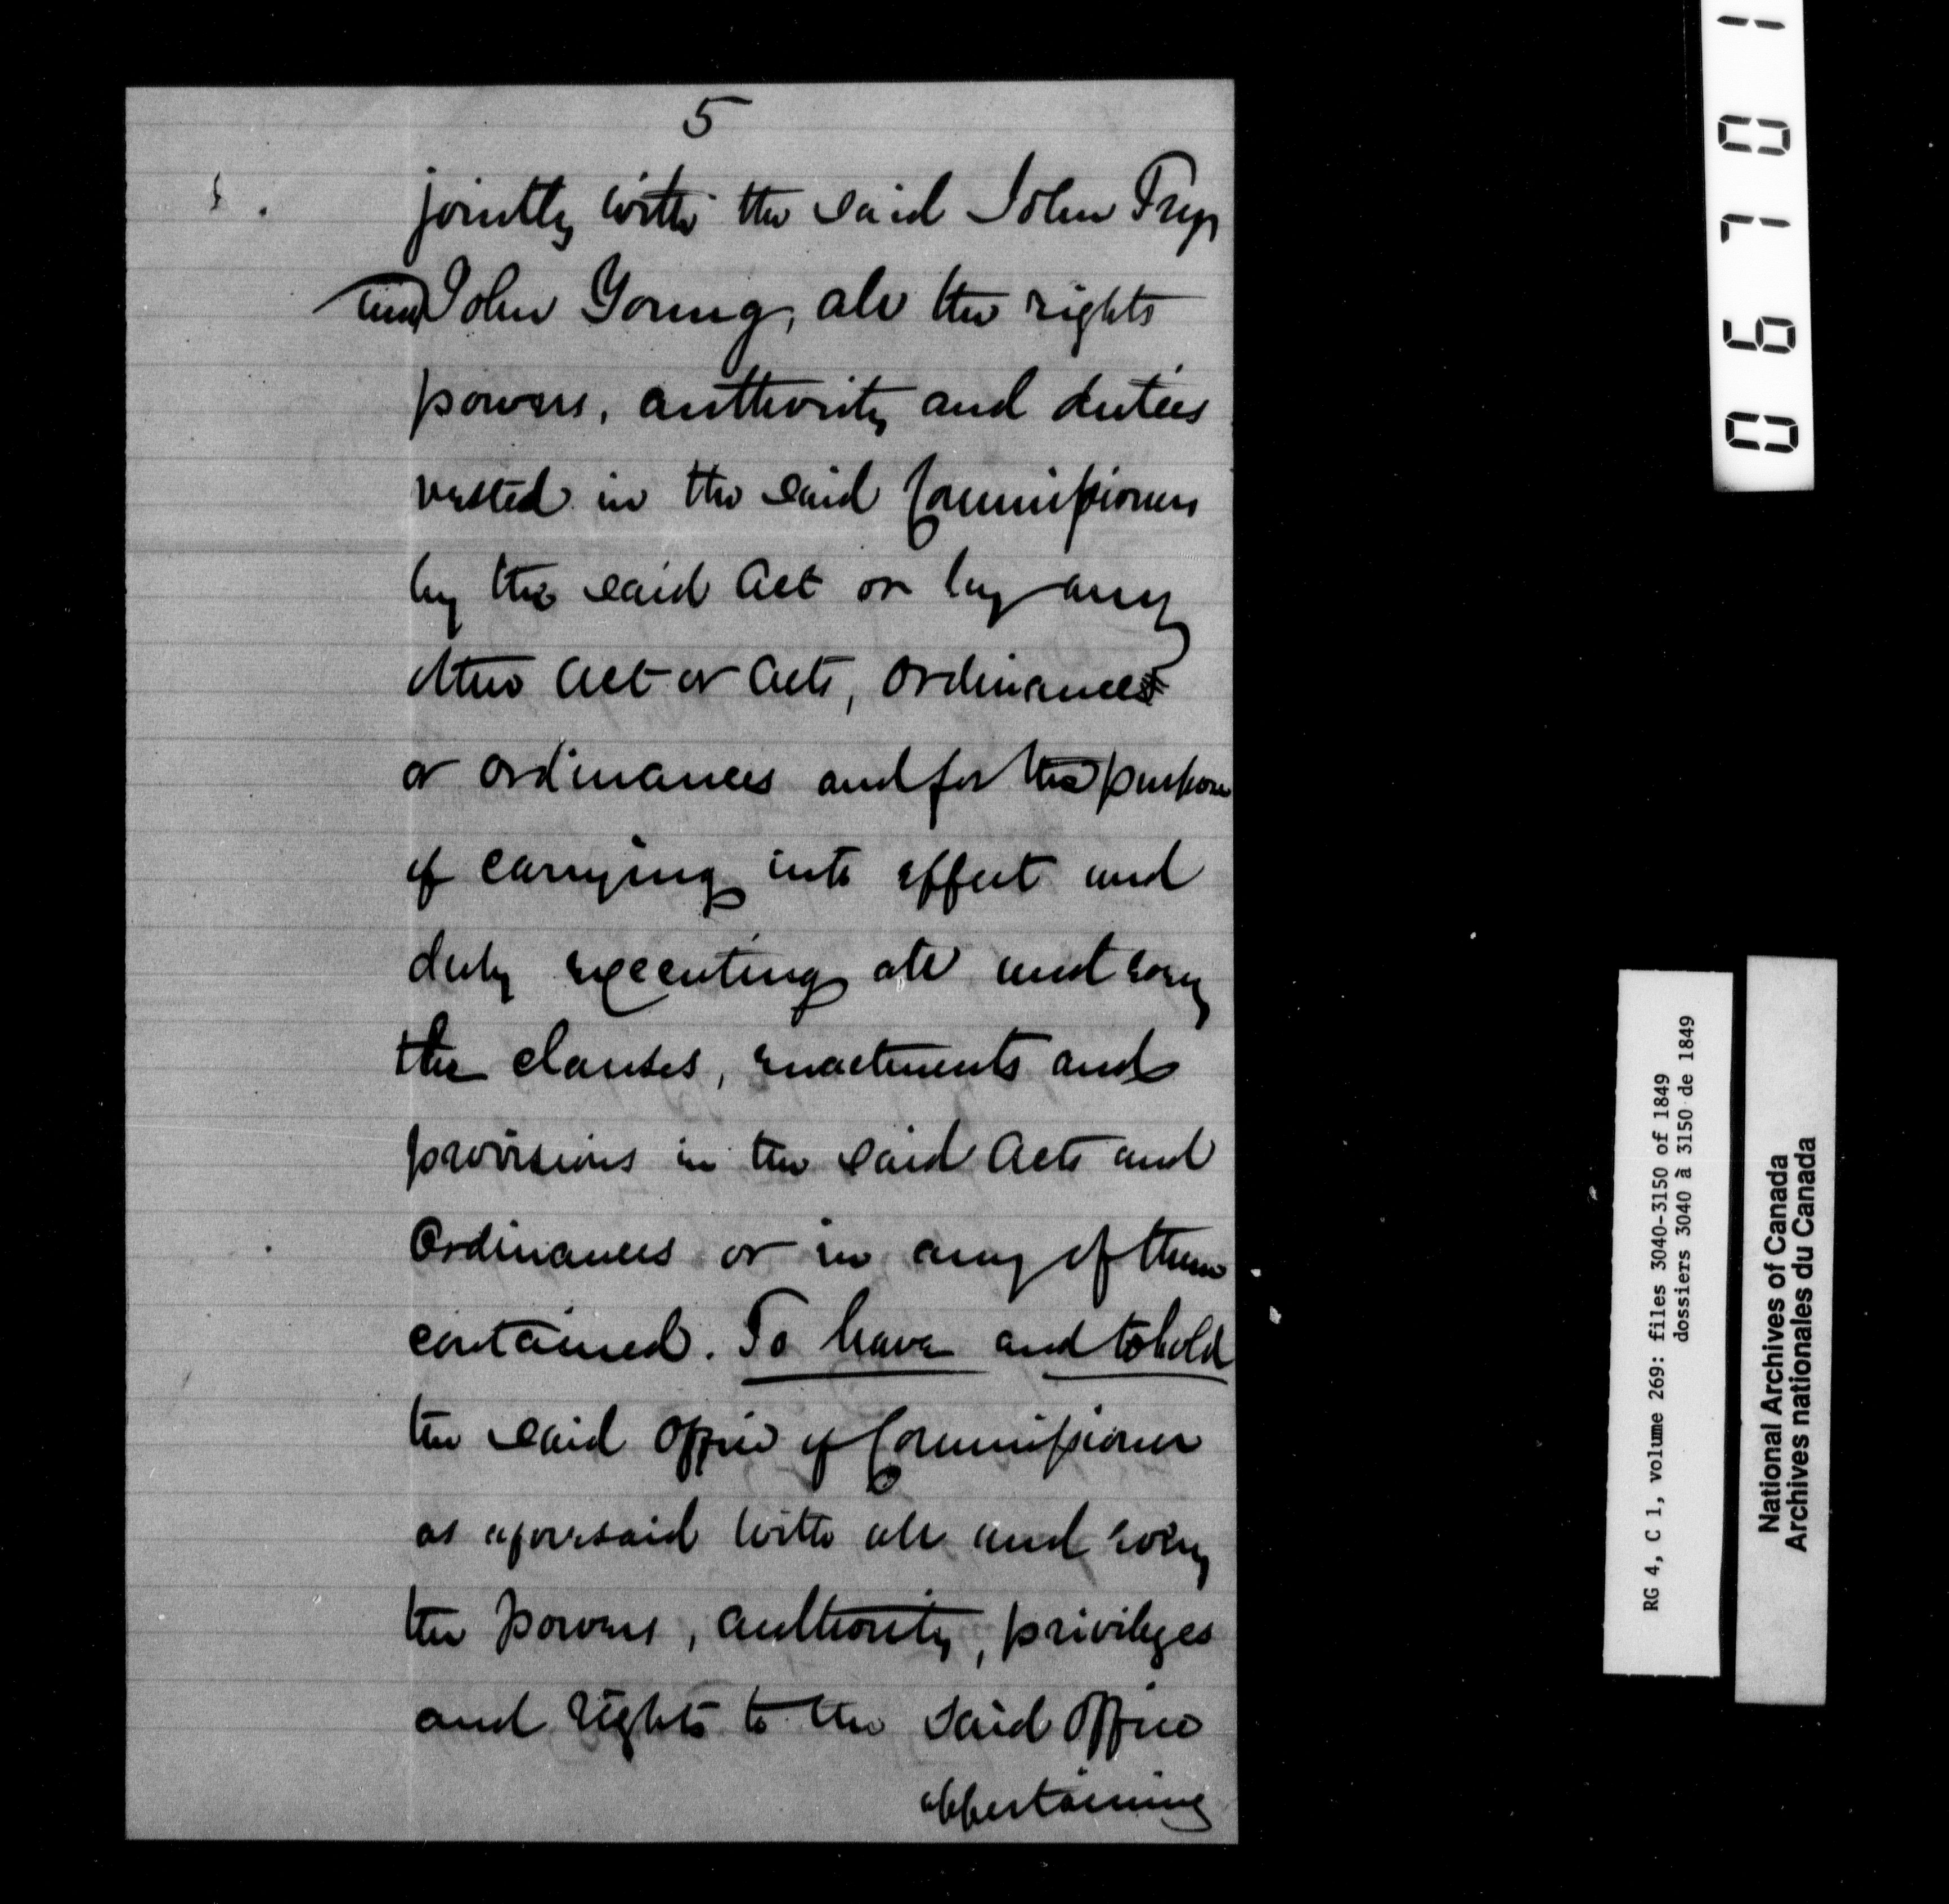 5
jointly with the said John Try
and John Young, all the rights
powers, authority and duties
vested in the said Commissioners
by the said Act or by any
other Act or Acts, Ordinance
or ordinances and for the purpose
of carrying into effect and
duly executing all and every
the clauses, enactments and
provisions in the said Acts and
Ordinances or in any of them
contained. To have and to hold
the said Office of Commissioner
as aforesaid with all and every
the powers, authority, privileges
and rights to the said Office
appertaining
06701
RG 4, C 1, volume 269: files 3040-3150 of 1849
dossiers 3040 à 3150 de 1849
National Archives of Canada
Archives nationales du Canada